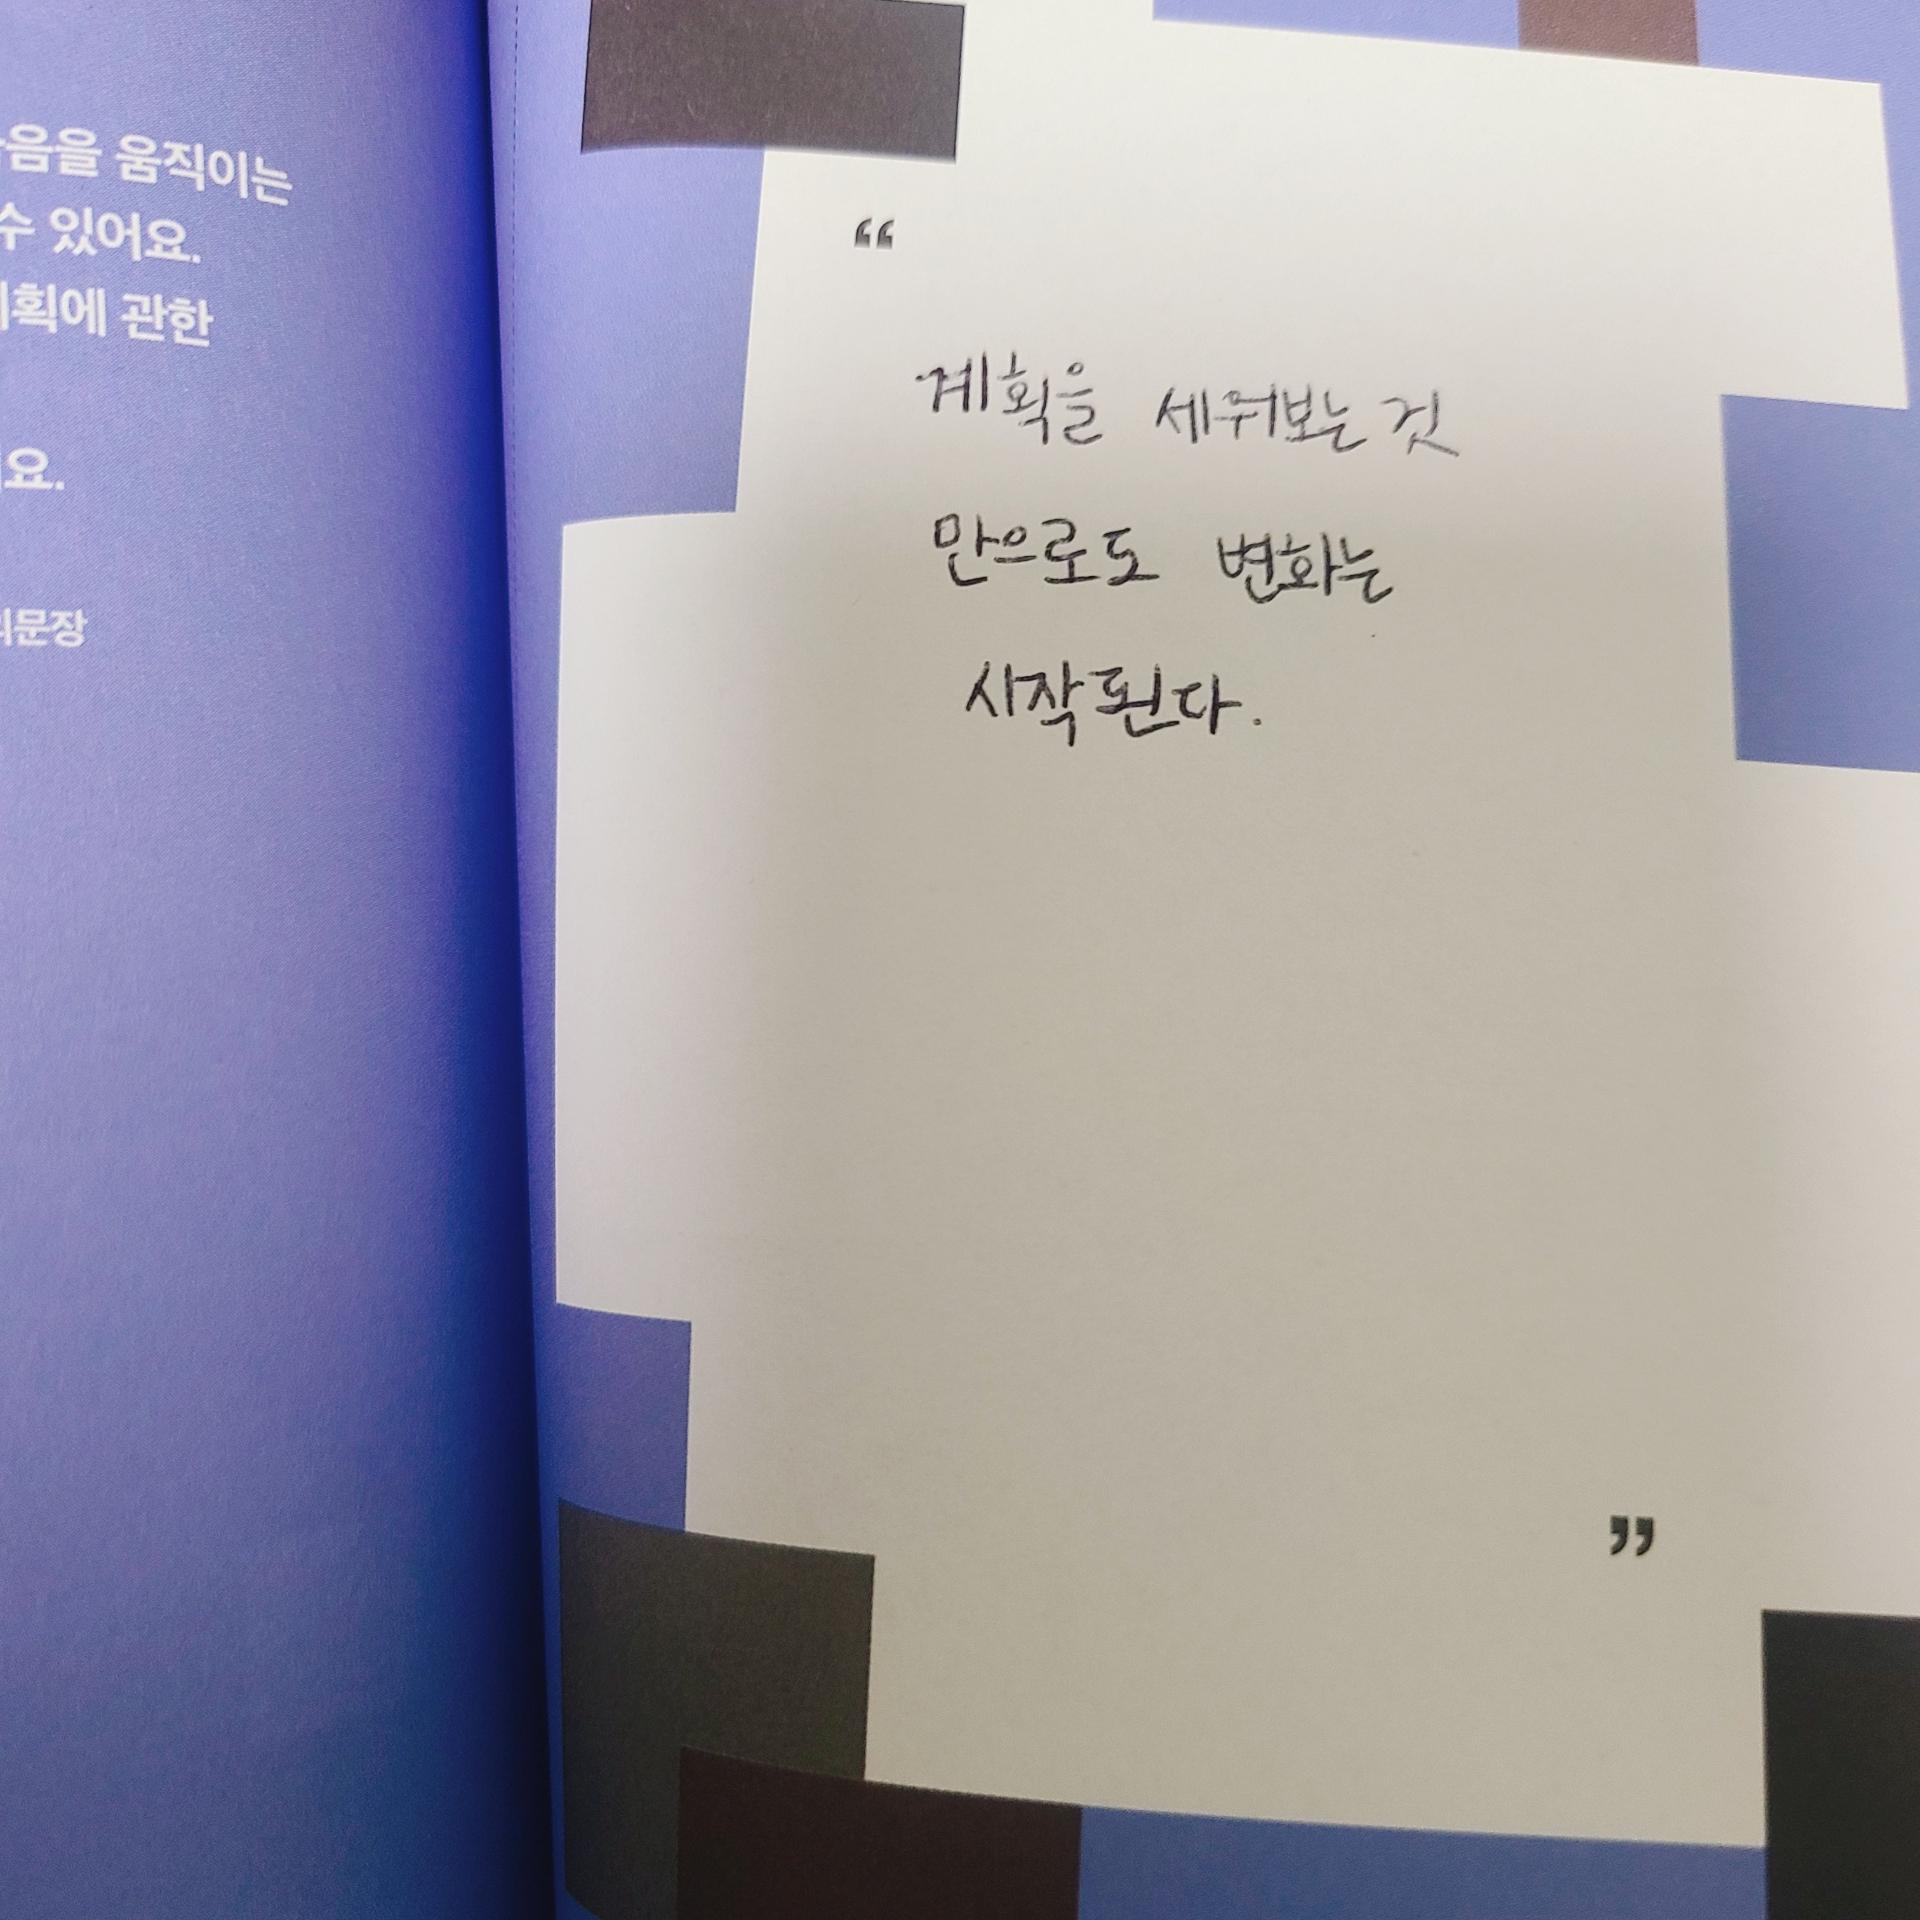 움직이는
수 있어요.
에 관한
요.
문장
“
계획을 세워보는 것
만으로도 변화는
시작된다.
”